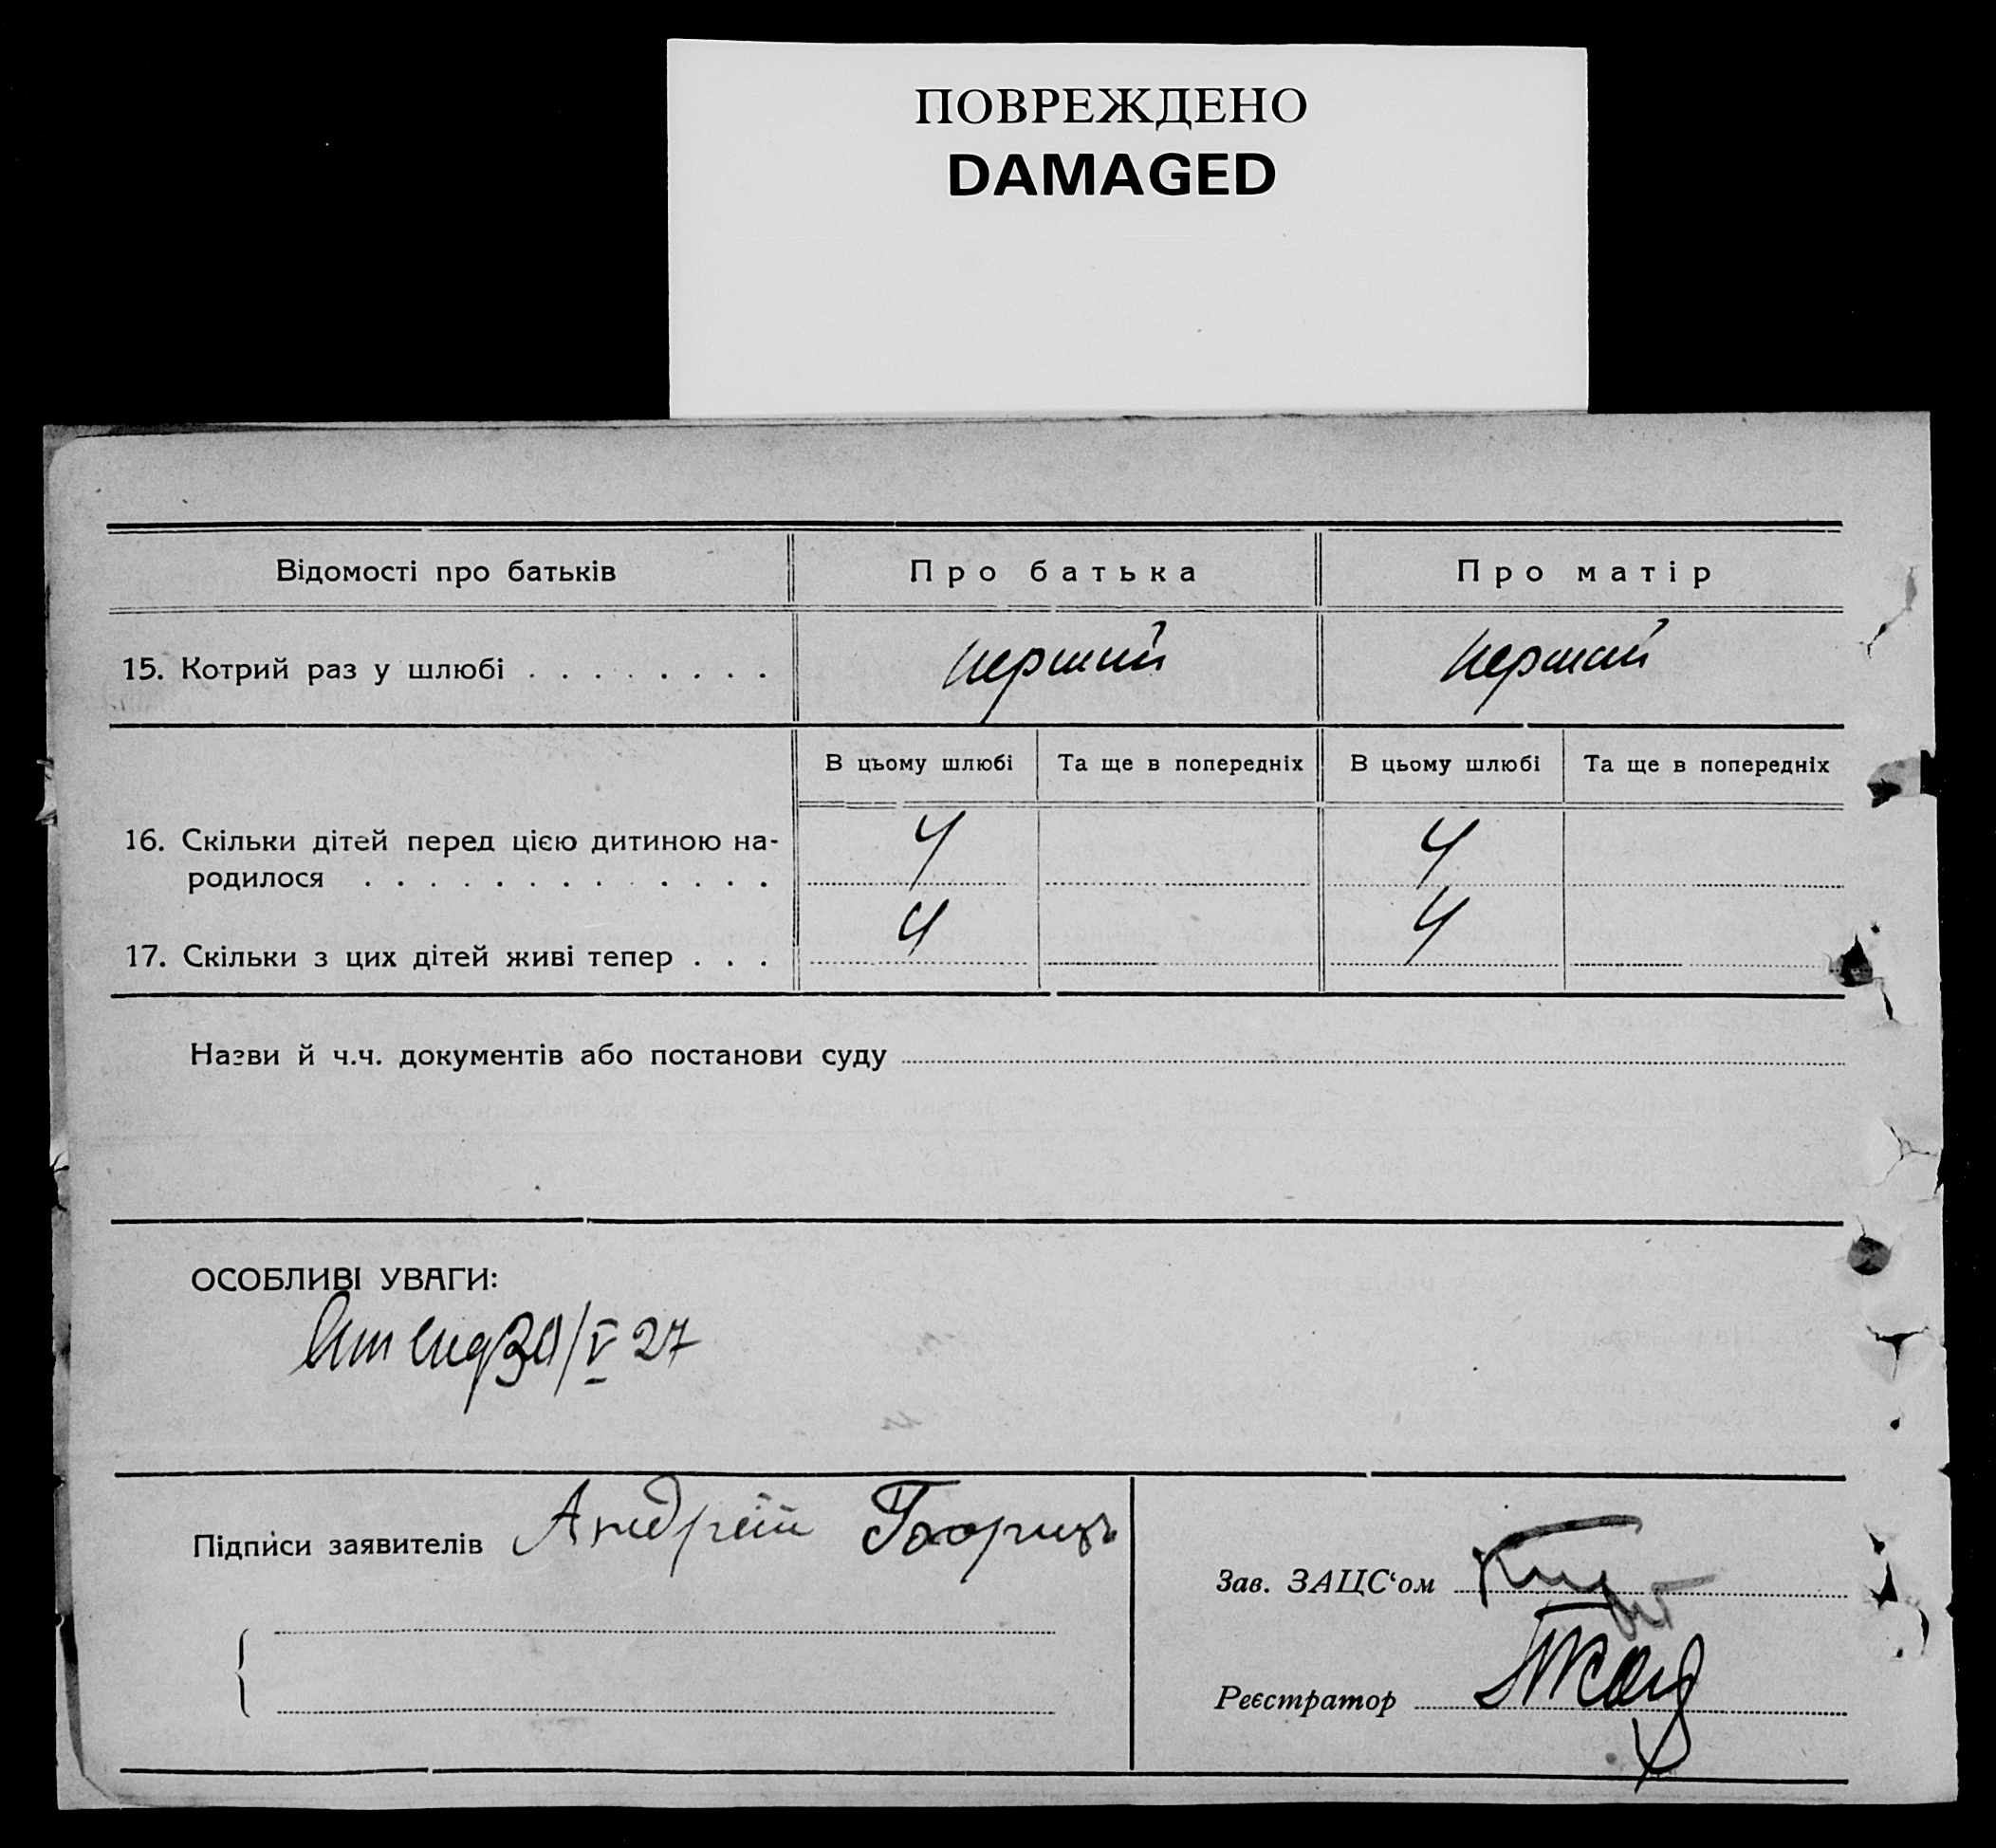 ПОВРЕЖДЕНО
DAMAGED
Відомості про батьків
Про батька
Про матір
15. Котрий раз у шлюбі . . . . . . . .
перший
перший
В цьому шлюбі
Та ще в попередніх
В цьому шлюбі
Та ще в попередніх
16. Скільки дітей перед цією дитиною на-
родилося . . . . . . . . . . . . .
4
4
17. Скільки з цих дітей живі тепер . . .
4
4
Назви й ч.ч. документів або постанови суду
ОСОБЛИВІ УВАГИ:
/V 27
Підписи заявителів Андрій
Зав. ЗАЦС‘ом
Реєстратор